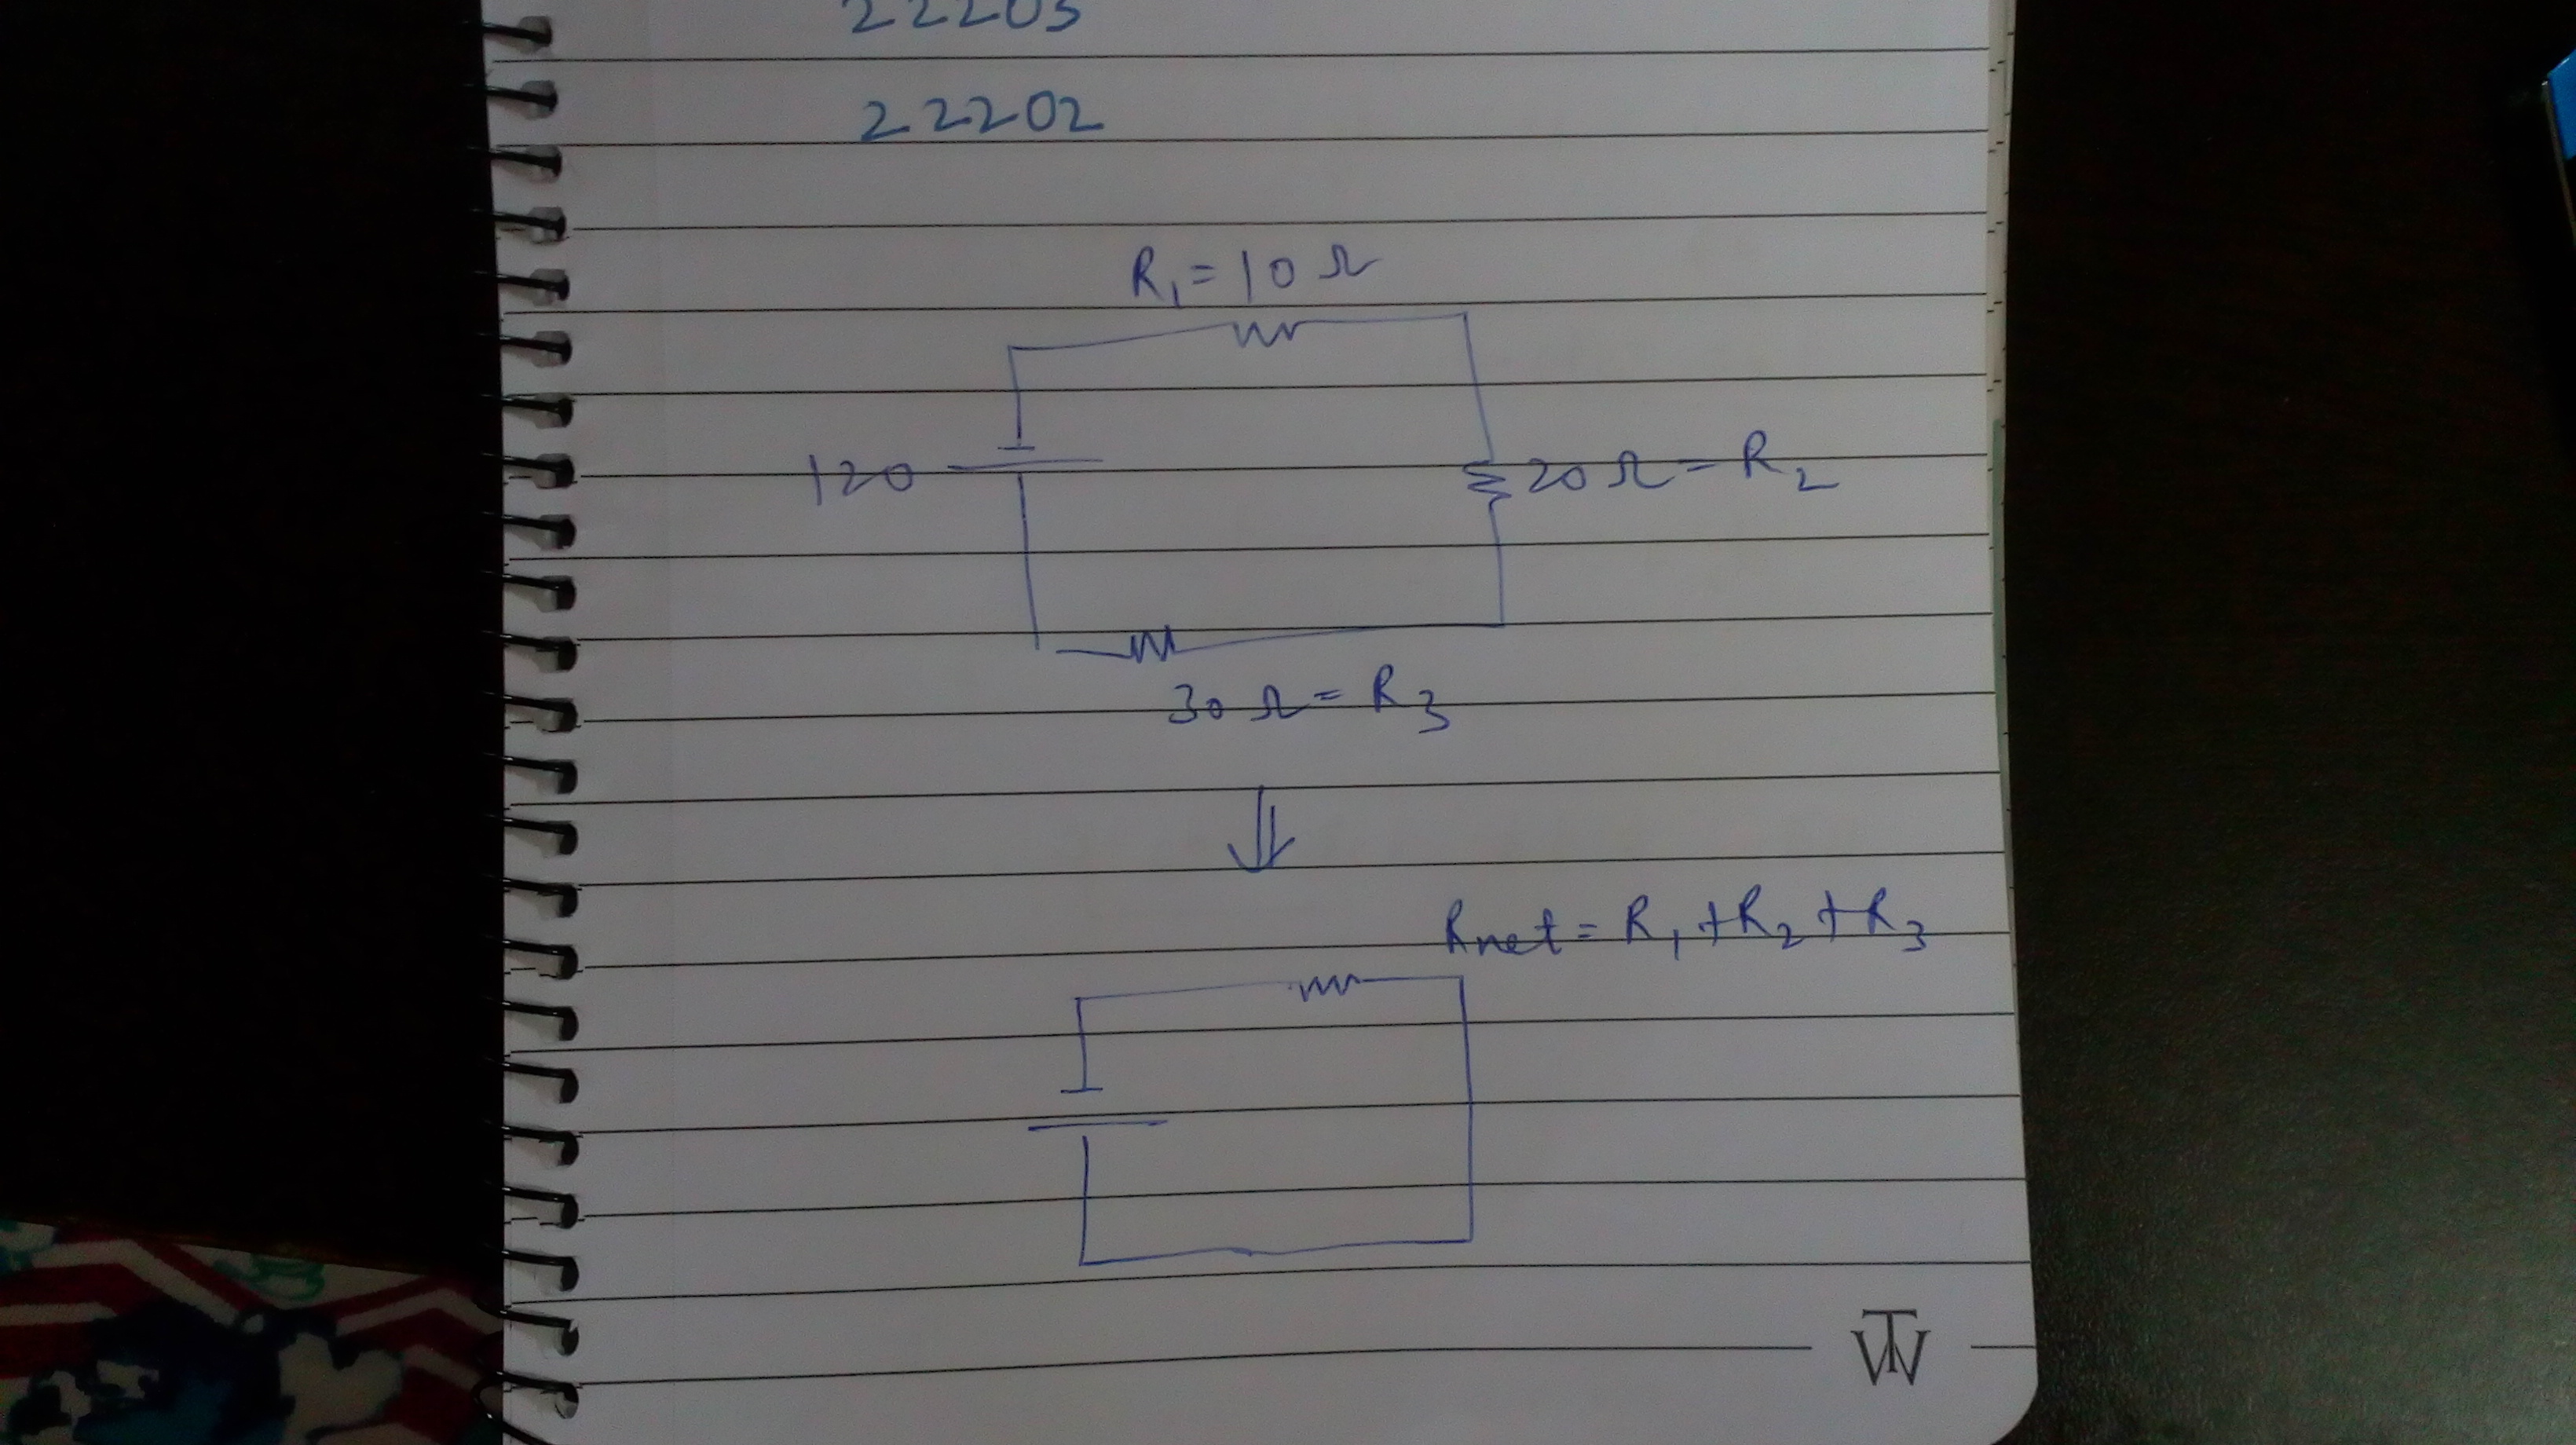 22203
22202
R₁ = 10 Ω
120
20 Ω = R₂
30 Ω = R₃
Rnet = R₁ + R₂ + R₃
TW